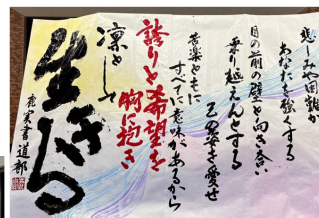 悲しみや困難が
あなたを強くする
目の前の壁と向き合い
乗り越えんとする
己の姿を愛せ
苦楽ともに
すべてに意味があるから
誇りと希望を
胸に抱き
凛として
生きる
書道部